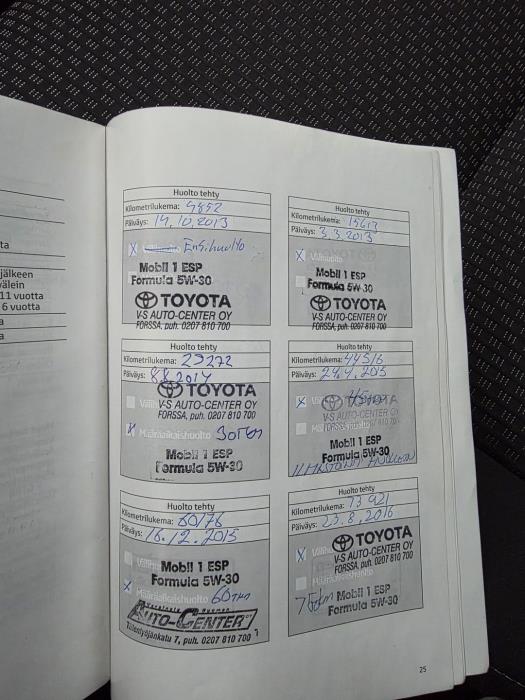 ta
jälkeen
välein
11 vuotta
6 vuotta
a
a
Huolto tehty
Kilometrilukema: 9852
Päiväys: 14.10.2013
X Ens.huolto
Mobil 1 ESP
Formula 5W-30
TOYOTA
V-S AUTO-CENTER OY
FORSSA, puh. 0207 810 700
Huolto tehty
Kilometrilukema: 15613
Päiväys: 3.3.2013
X Välihuolto
Mobil 1 ESP
Formula 5W-30
TOYOTA
V-S AUTO-CENTER OY
FORSSA, puh. 0207 810 700
Huolto tehty
Kilometrilukema: 29272
Päiväys: 8.8.2014
TOYOTA
V-S AUTO-CENTER OY
FORSSA, puh. 0207 810 700
X Määräaikaishuolto 30tkm
Mobil 1 ESP
Formula 5W-30
Huolto tehty
Kilometrilukema: 44516
Päiväys: 24.4.2015
X 45tkm
TOYOTA
V-S AUTO-CENTER OY
FORSSA, puh. 0207 810 700
Mobil 1 ESP
Formula 5W-30
Huolto tehty
Kilometrilukema: 60176
Päiväys: 16.12.2015
Mobil 1 ESP
Formula 5W-30
X Määräaikaishuolto 60tkm
AUTO-CENTER OY
7, puh. 0207 810 700
Huolto tehty
Kilometrilukema: 73921
Päiväys: 23.8.2016
TOYOTA
X V-S AUTO-CENTER OY
FORSSA, puh. 0207 810 700
Määräaikaishuolto
75tkm Mobil 1 ESP
Formula 5W-30
25